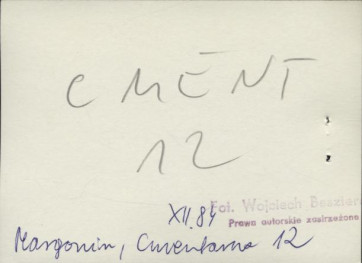 CMENT
12
XII.84
Fot. Wojciech
Prawa autorskie zastrzeżone
Margonin, Cmentarna 12